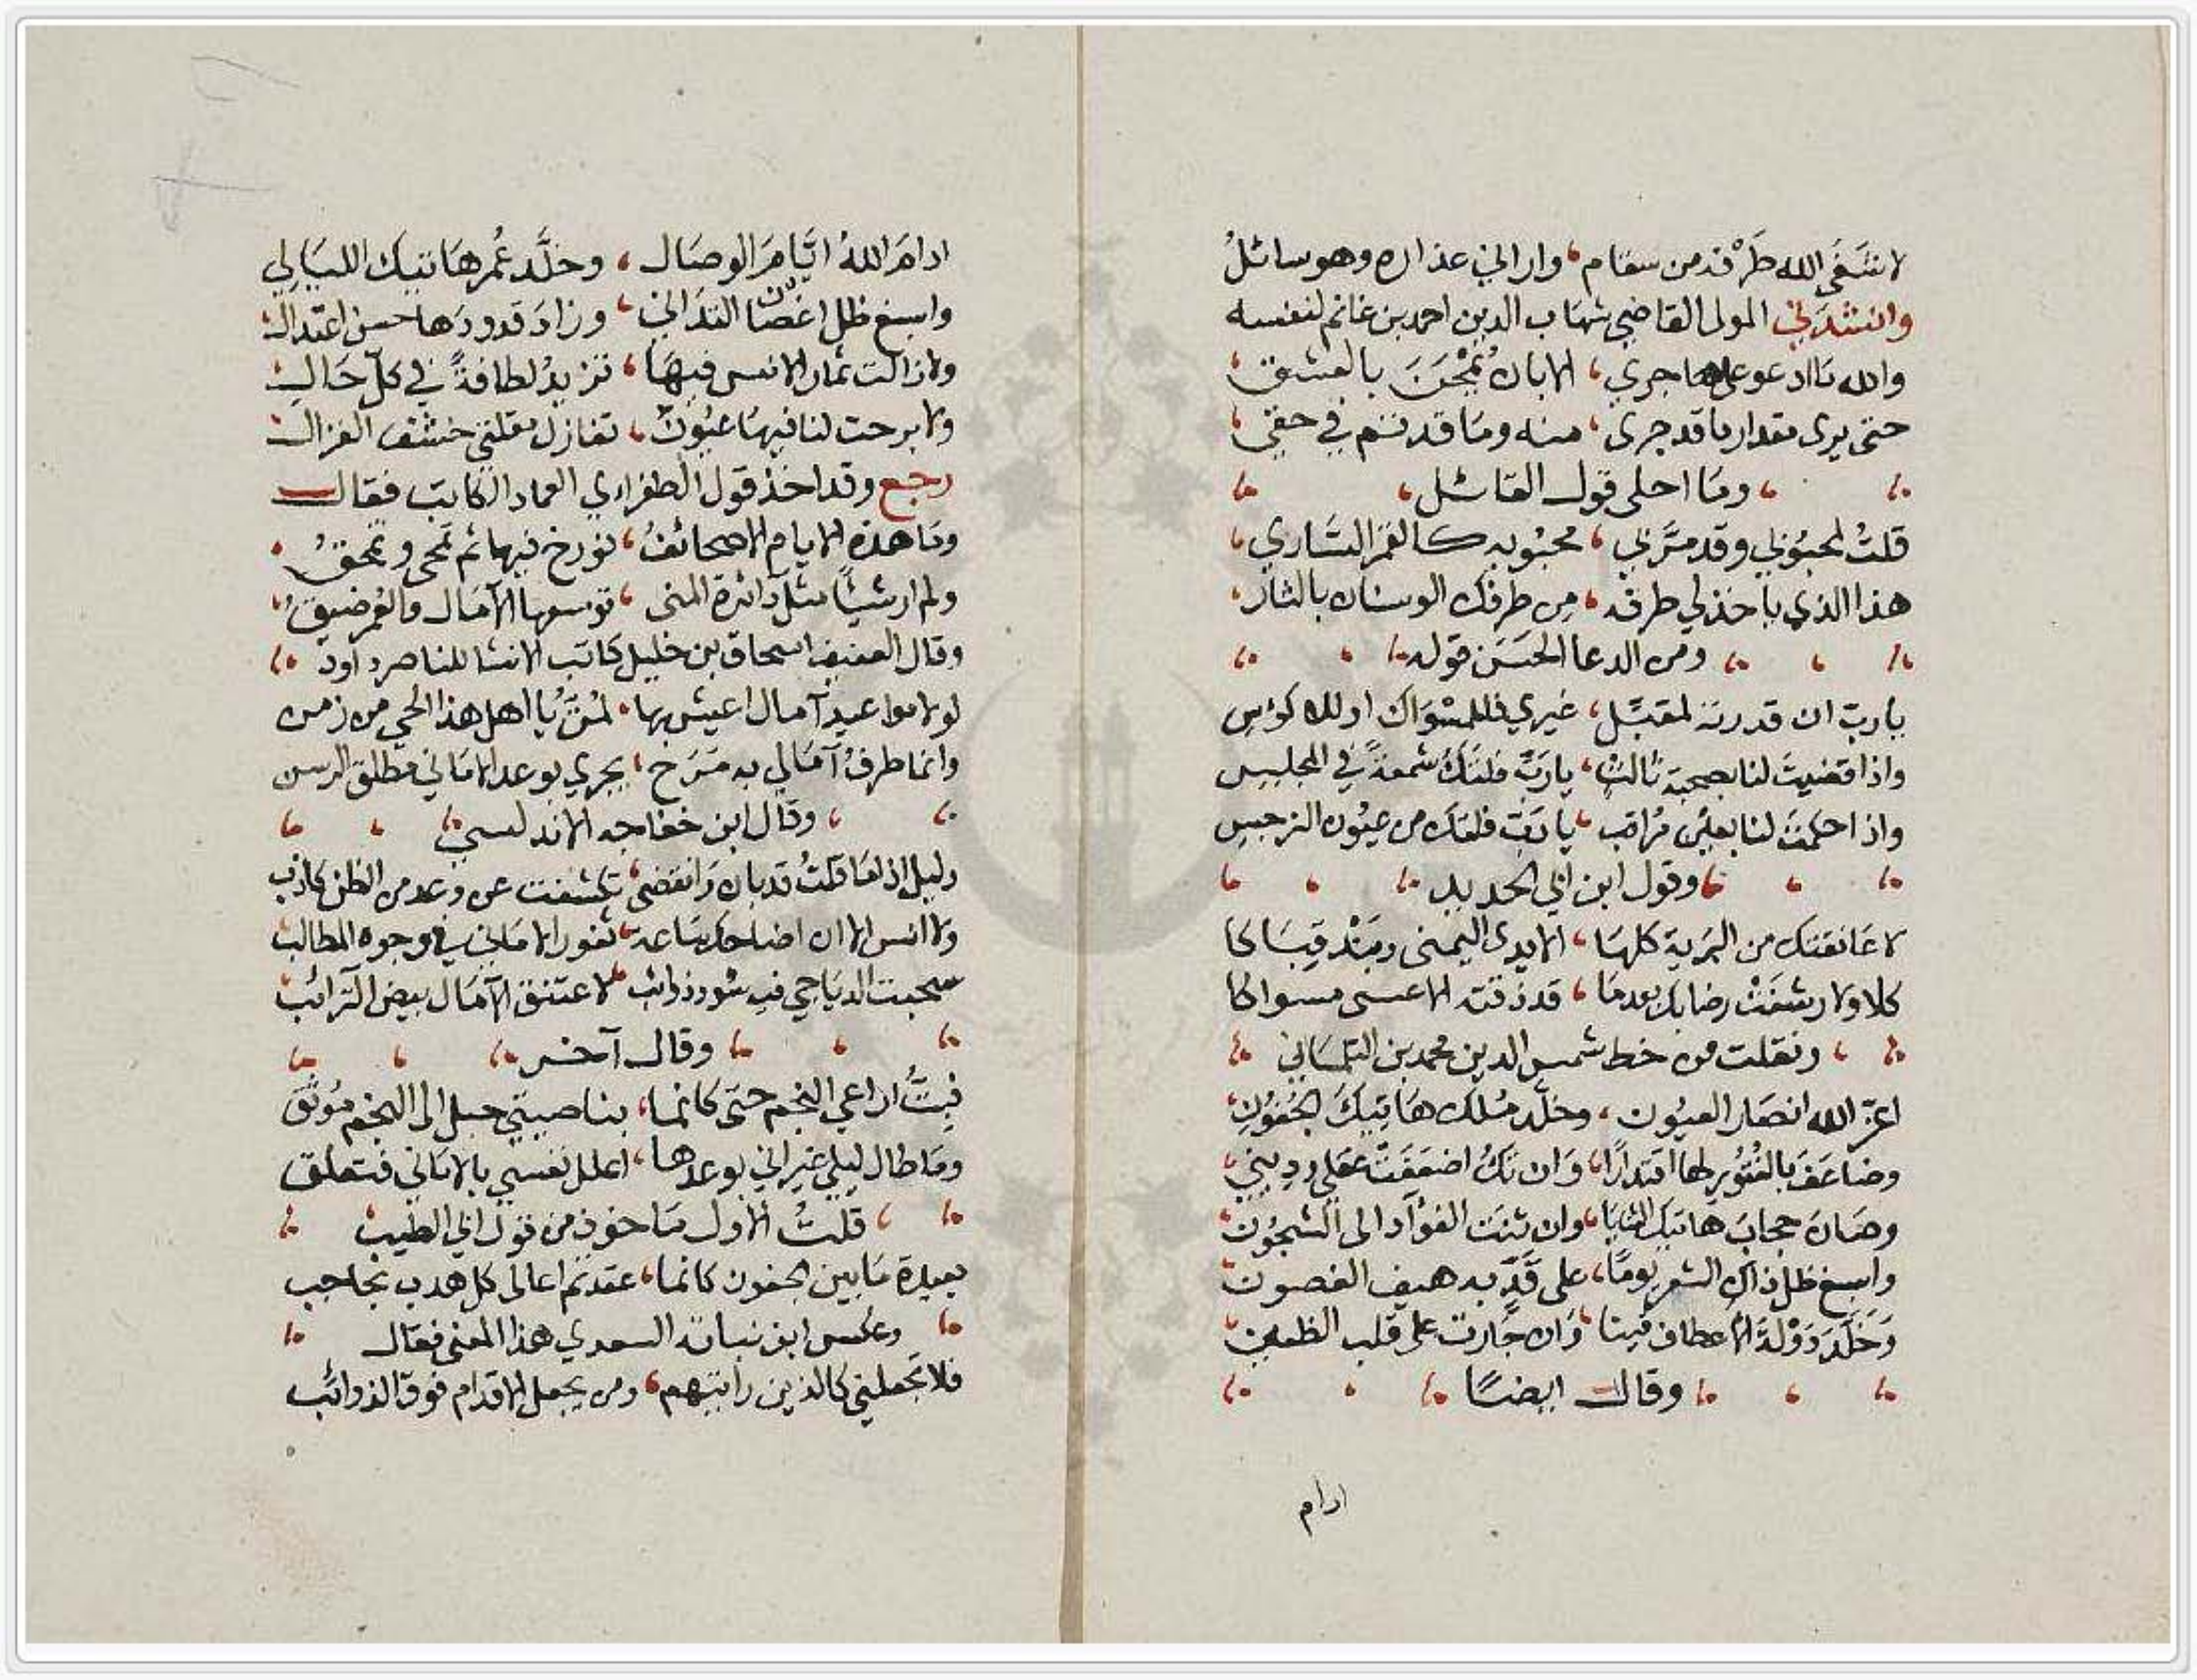 لا شفى الله طرفه من سقام، واراني عذاره وهو سائل
وانشدني المولى القاضي شهاب الدين احمد بن غانم لنفسه
والله ما ادعو على هاجري، الا بان يمحن بالعشق
حتى يرى مقدار ما قد جرى، منه وما قد تم في حقي
وما احلى قول القائل
قلت لمحبوبي وقد مر بي، محبوبه كالقمر الساري
هذا الذي ياخذ لي طرفه، من طرفك الوسنان بالثار
ومن الدعا الحسن قوله
يا رب ان قدرته لمقبل، غيري فللمسواك او للاكؤس
واذا قضيت لنا بصحبة ثالث، يا رب فلتك شمعة في المجلس
واذا حكمت لنا بعين مراقب، يا رب فلتك من عيون النرجس
وقول ابن ابي الحديد
لا عانقتك من البرية كلها، الا يدي اليمنى وبند قباكا
كلا ولا رشفت رضابك بعدما، قد ذقته الا عسى مسواكا
ونقلت من خط شمس الدين محمد بن التلمساني
اعز الله انصار العيون، وخلد ملك هاتيك الجفون
وضاعف بالفتور لها اقتدارا، وان تك اضعفت عقلي وديني
وصان حجاب هاتيك الثنايا، وان ثنت الفؤاد الى الشجون
واسبغ ظل ذاك الشعر يوما، على قد به هيف الغصون
وخلد دولة الاعطاف فينا، وان جارت على قلب الطعين
وقال ايضا
ادام
ادام الله ايام الوصال، وخلد عمر هاتيك الليالي
واسبغ ظل اغصان التداني، وزاد قدودها حسن اعتدال
ولا زالت ثمار الانس فيها، تزيد لطافة في كل حال
ولا برحت لنا فيها عيون، تغازل مقلتي خشف الغزال
رجع وقد اخذ قول الطغراءي العماد الكاتب فقال
وما هذه الايام الا صحائف، نورخ فيها ثم تمحى وتمحق
ولم ار شيئا مثل دائرة المنى، توسعها الآمال والعمر ضيق
وقال العفيف اسحاق بن خليل كاتب الانشا للناصر داود
لولا مواعيد آمال اعيش بها، لمت يا اهل هذا الحي من زمن
وانما طرف آمالي به مرح، يجري بوعد الاماني مطلق الرسن
وقال ابن خفاجه الاندلسي
وليل اذا ما قلت قد بان وانقضى، تكشفت عن وعد من الظن كاذب
ولا انس الا ان اضاحك ساعة، ثغور الاماني في وجوه المطالب
سحبت الدياجي فيه سود ذوائب، لاعتنق الآمال بيض الترائب
وقال آخر
فبت اراعي النجم حتى كانما، بناصيتي حبل الى النجم موثق
وما طال ليلي غير اني بوعدها، اعلل نفسي بالاماني فتعلق
قلت الاول ماخوذ من قول ابي الطيب
بعيدة ما بين الجفون كانما، عقدتم اعالى كل هدب بحاجب
وعكس ابن نباته السعدي هذا المعنى فقال
فلا تجعليني كالذين رايتهم، ومن يجعل الاقدام فوق الذوائب